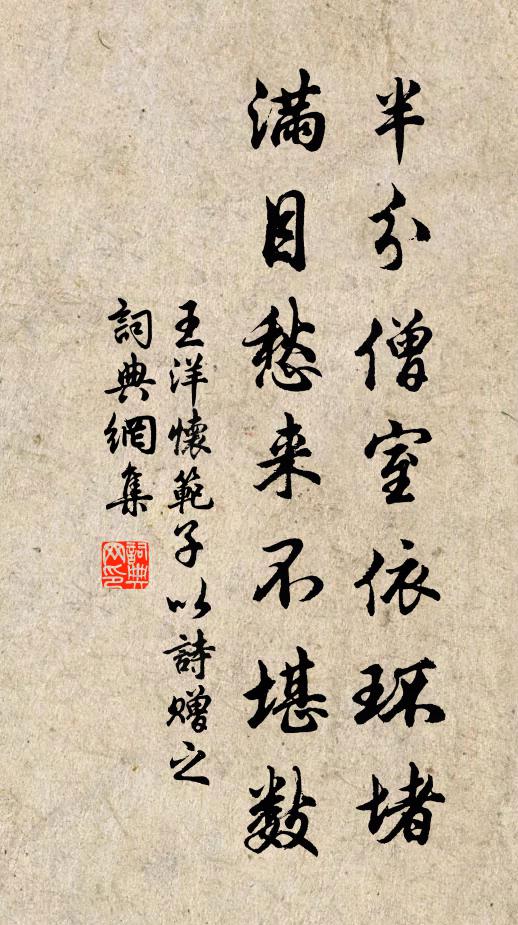 半分僧室依环堵
满目愁来不堪数
王洋懷範子以詩贈之
詞典網集
詞典网印